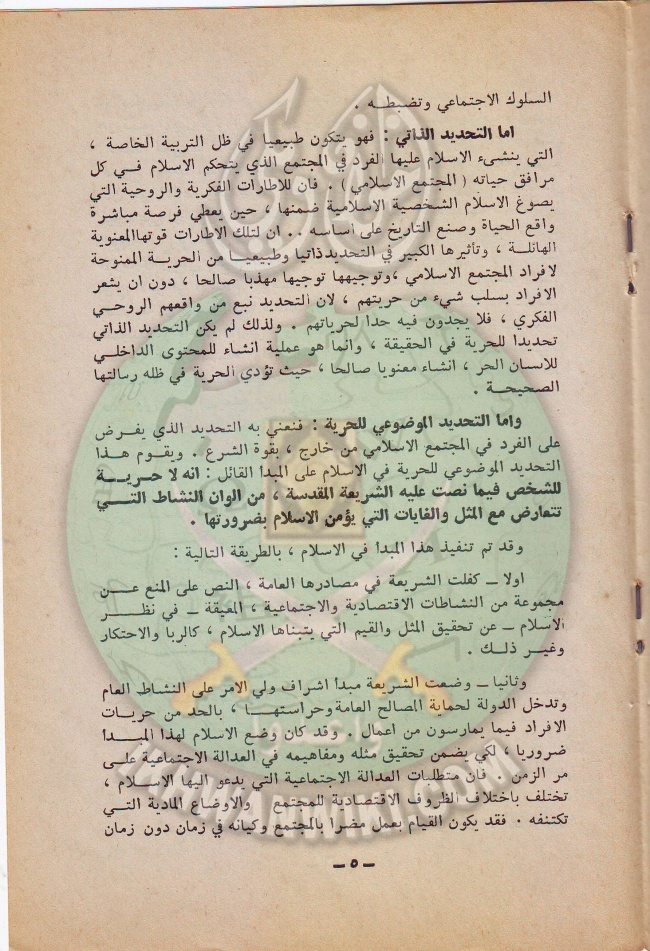 السلوك الاجتماعي وتضبطه .
اما التحديد الذاتي : فهو يتكون طبيعيا في ظل التربية الخاصة ،
التي ينشىء الاسلام عليها الفرد في المجتمع الذي يتحكم الاسلام في كل
مرافق حياته ( المجتمع الاسلامي ) . فان للاطارات الفكرية والروحية التي
يصوغ الاسلام الشخصية الاسلامية ضمنها ، حين يعطي فرصة مباشرة
واقع الحياة وصنع التاريخ على أساسه .. ان لتلك الاطارات قوتها المعنوية
الهائلة ، وتأثيرها الكبير في التحديد ذاتيا وطبيعيا من الحرية الممنوحة
لافراد المجتمع الاسلامي ، وتوجيهها توجيها مهذبا صالحا ، دون ان يشعر
الافراد بسلب شيء من حريتهم ، لان التحديد نبع من واقعهم الروحي
الفكري ، فلا يجدون فيه حدا لحرياتهم . ولذلك لم يكن التحديد الذاتي
تحديدا للحرية في الحقيقة ، وانما هو عملية انشاء للمحتوى الداخلي
للانسان الحر ، انشاء معنويا صالحا ، حيث تؤدي الحرية في ظله رسالتها
الصحيحة .
واما التحديد الموضوعي للحرية : فنعني به التحديد الذي يفرض
على الفرد في المجتمع الاسلامي من خارج ، بقوة الشرع . ويقوم هذا
التحديد الموضوعي للحرية في الاسلام على المبدأ القائل : انه لا حرية
للشخص فيما نصت عليه الشريعة المقدسة ، من الوان النشاط التي
تتعارض مع المثل والغايات التي يؤمن الاسلام بضرورتها .
وقد تم تنفيذ هذا المبدأ في الاسلام ، بالطريقة التالية :
اولا ــ كفلت الشريعة في مصادرها العامة ، النص على المنع عن
مجموعة من النشاطات الاقتصادية والاجتماعية ، المعيقة ــ في نظر
الاسلام ــ عن تحقيق المثل والقيم التي يتبناها الاسلام ، كالربا والاحتكار
وغير ذلك .
وثانيا ــ وضعت الشريعة مبدأ اشراف ولي الامر على النشاط العام
وتدخل الدولة لحماية المصالح العامة وحراستها ، بالحد من حريات
الافراد فيما يمارسون من اعمال . وقد كان وضع الاسلام لهذا المبدا
ضروريا ، لكي يضمن تحقيق مثله ومفاهيمه في العدالة الاجتماعية على
مر الزمن . فان متطلبات العدالة الاجتماعية التي يدعو اليها الاسلام ،
تختلف باختلاف الظروف الاقتصادية للمجتمع والاوضاع المادية التي
تكتنفه . فقد يكون القيام بعمل مضرا بالمجتمع وكيانه في زمان دون زمان
ــ ٥ ــ